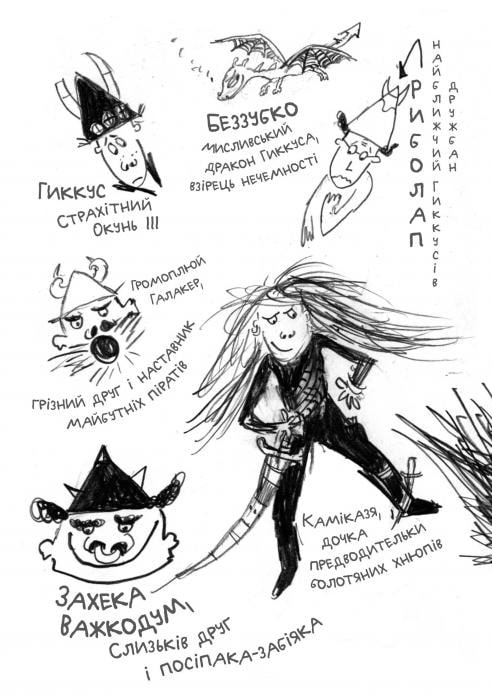 Беззубко
мисливський
дракон Гиккуса,
взірець нечемності
Гиккус
Страхітний
Окунь III
Риболап
найближчий Гиккусів
дружбан
Громоплюй
Галакер,
грізний друг і наставник
майбутніх піратів
Камікадзя,
дочка
предводительки
болотяних хнюпів
Захека
Важкодум,
Слизьків друг
і посіпака-забіяка